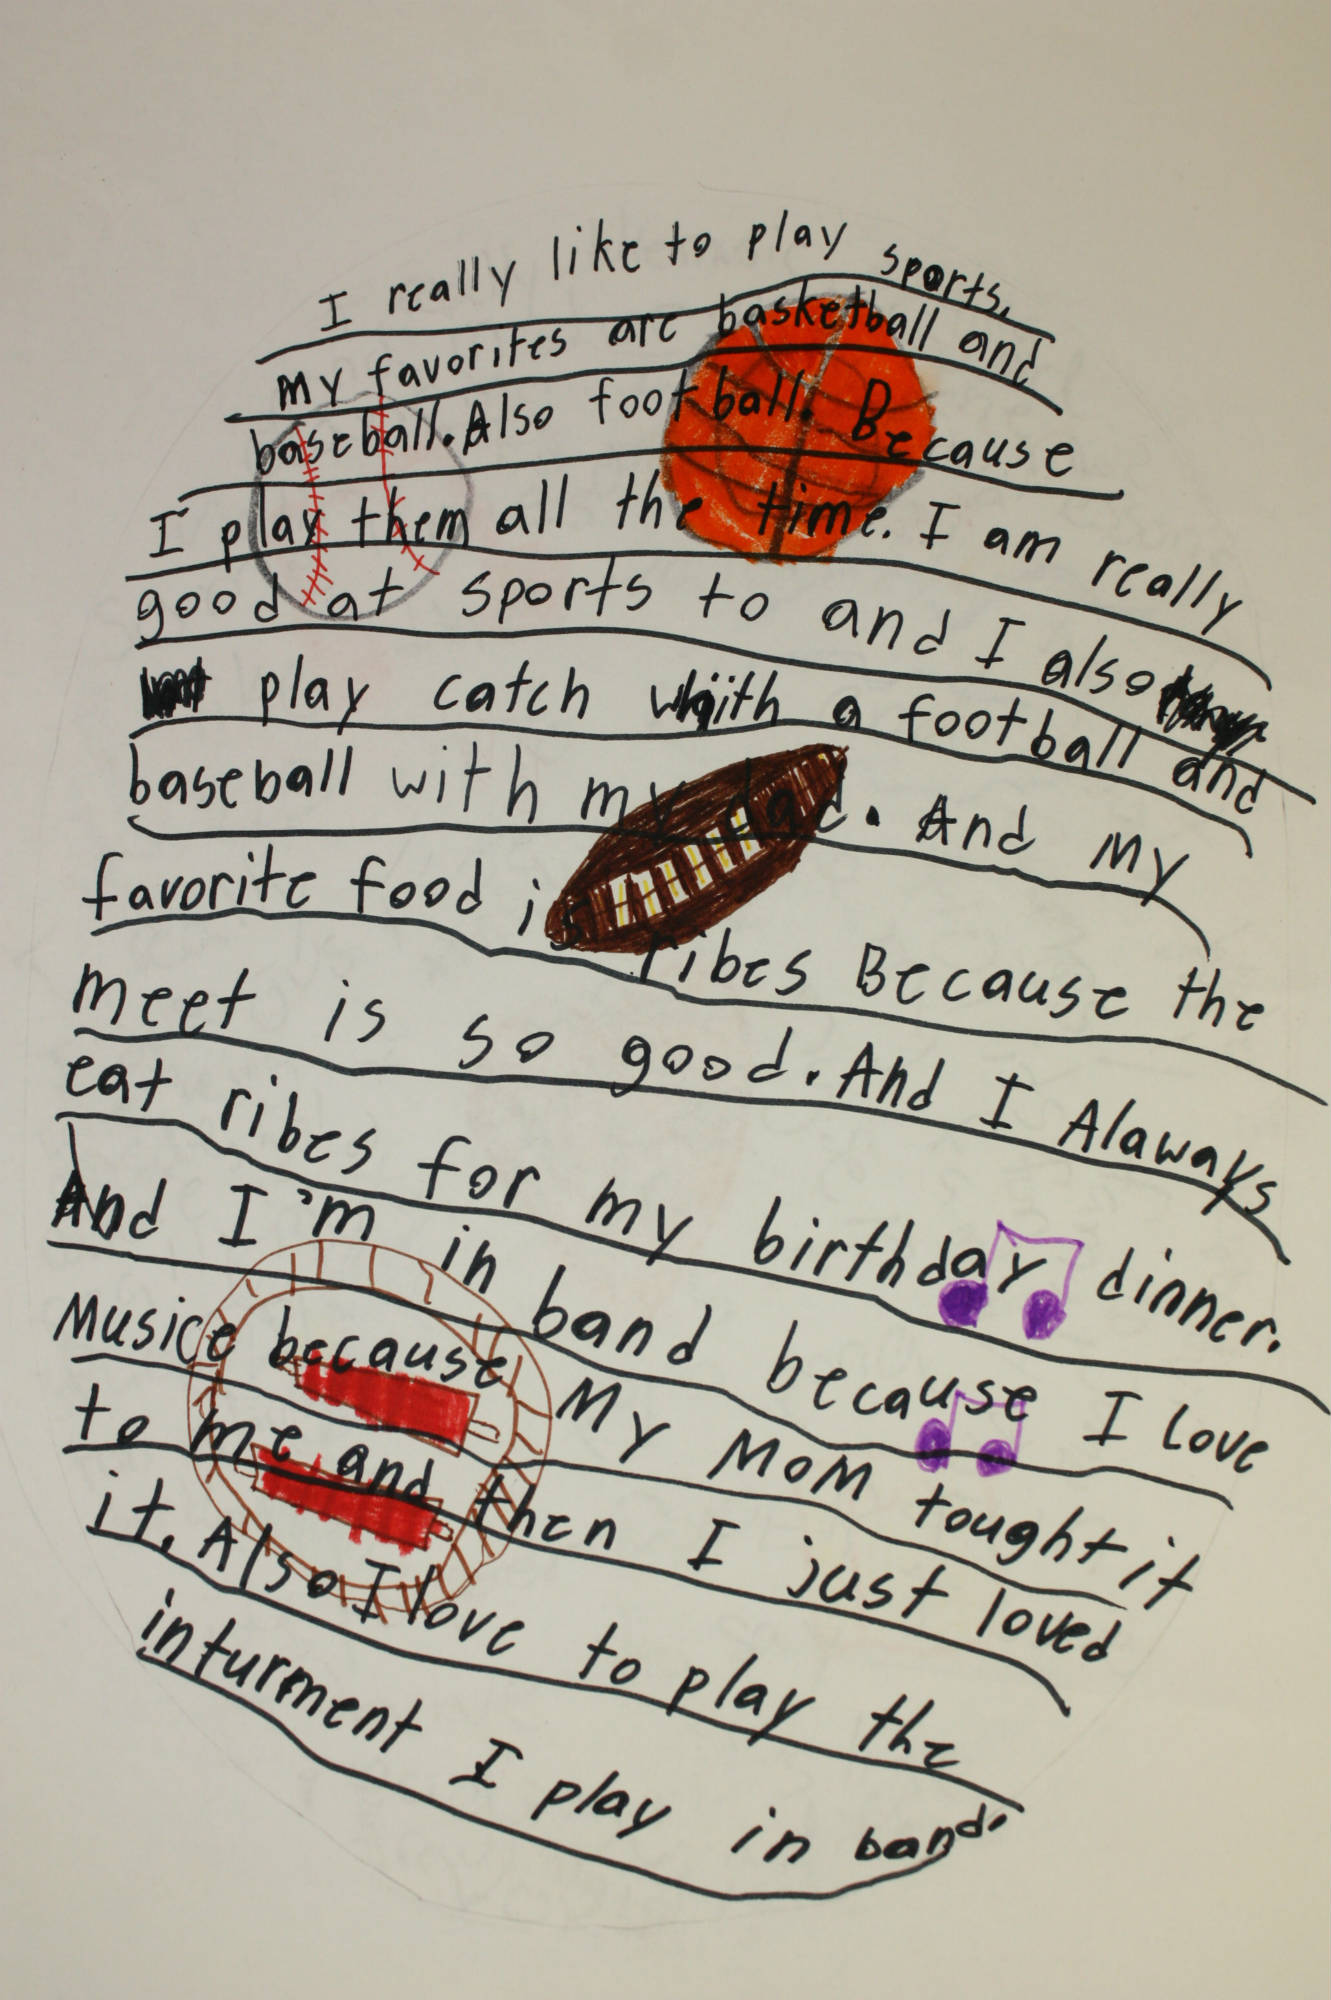 I really like to play sports.
my favorites are basketball and
baseball. Also football. Because
I play them all the time. I am really
good at sports to and I also
play catch with a football and
baseball with my dad. And my
favorite food is ribes Because the
meet is so good. And I Alaways
eat ribes for my birthday dinner.
And I'm in band because I love
Musice because My MOM tought it
to me and then I just loved
it. Also I love to play the
inturment I play in band.